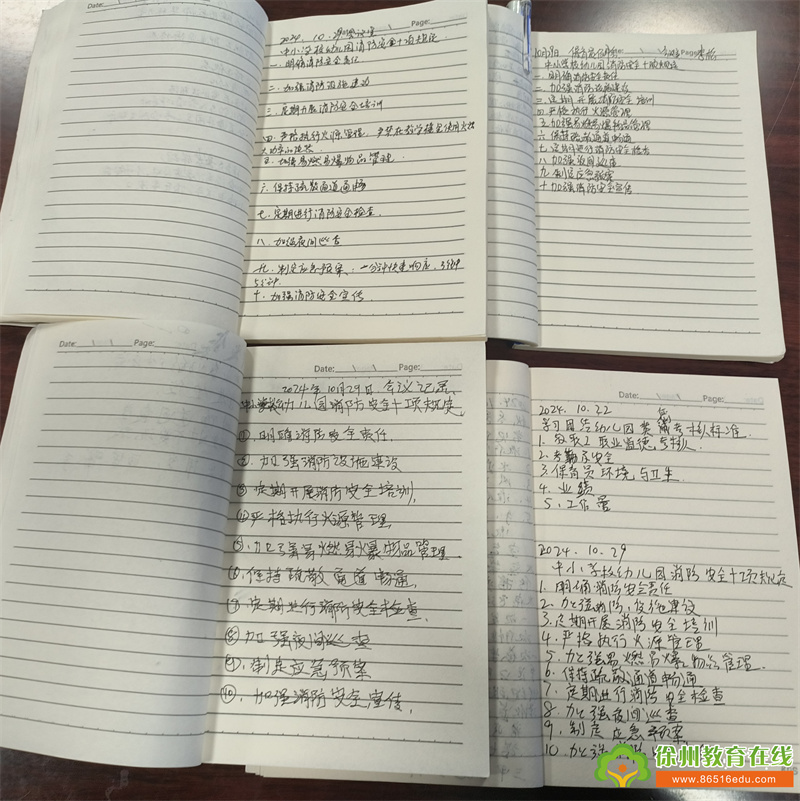 Page:
2024. 10. 29
中小学校幼儿园消防安全十项规定
一. 明确消防安全责任
二. 加强消防设施建设
三. 定期开展消防安全培训
四. 严格执行火源管理,
五. 加强易燃易爆物品管理.
六. 保持疏散通道通畅
七. 定期进行消防安全检查.
八. 加强夜间巡查
九. 制定应急预案. 一分钟快速响应. 3分钟
5分钟.
十. 加强消防安全宣传.
10月29日
中小学校幼儿园消防安全十项规定
一. 明确消防安全责任
二. 加强消防设施建设
三. 定期开展消防安全培训
四. 严格执行火源管理
五. 加强易燃易爆物品管理
六. 保持疏散通道畅通
七. 定期进行消防安全检查
八. 加强夜间巡查
九. 制定应急预案
十. 加强消防安全宣传
Date: Page:
Date: Page:
2024年10月29日 会议记录
中小学校幼儿园消防安全十项规定
①. 明确消防安全责任
②. 加强消防设施建设
③. 定期开展消防安全培训,
④. 严格执行火源管理,
⑤. 加强易燃易爆物品管理
⑥. 保持疏散通道畅通,
⑦. 定期进行消防安全检查.
⑧. 加强夜间巡查
⑨. 制定应急预案
⑩. 加强消防安全宣传,
Date: Page:
2024. 10. 22
1. 教职工职业道德考核
2. 考勤及安全
3. 保育员环境与卫生
4. 业绩
5. 工作量
2024. 10. 29
中小学校幼儿园消防安全十项规定
1. 明确消防安全责任
2. 加强消防设施建设
3. 定期开展消防安全培训
4. 严格执行火源管理
5. 加强易燃易爆物品管理.
6. 保持疏散通道畅通
7. 定期进行消防安全检查
8. 加强夜间巡查
9. 制定应急预案
10. 加强
徐州教育在线
www.86516edu.com